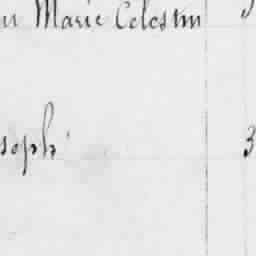 Marie Celestin
soph 3